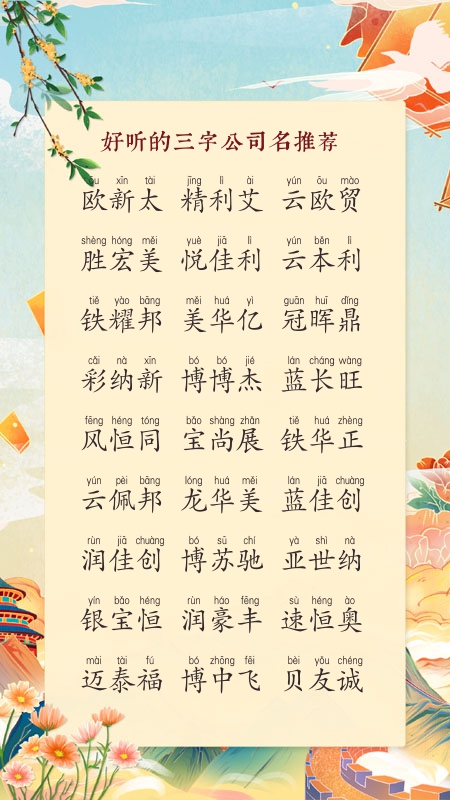 好听的三字公司名推荐
ōu xīn tài jīng lì ài yún ōu mào
欧新太 精利艾 云欧贸
shèng hóng měi yuè jiā lì yún běn lì
胜宏美 悦佳利 云本利
tiě yào bāng měi huá yì guān huī dǐng
铁耀邦 美华亿 冠晖鼎
cǎi nà xīn bó bó jié lán cháng wàng
彩纳新 博博杰 蓝长旺
fēng héng tóng bǎo shàng zhǎn tiě huá zhèng
风恒同 宝尚展 铁华正
yún pèi bāng lóng huá měi lán jiā chuàng
云佩邦 龙华美 蓝佳创
rùn jiā chuàng bó sū chí yà shì nà
润佳创 博苏驰 亚世纳
yín bǎo héng rùn háo fēng sù héng ào
银宝恒 润豪丰 速恒奥
mài tài fú bó zhōng fēi bèi yǒu chéng
迈泰福 博中飞 贝友诚